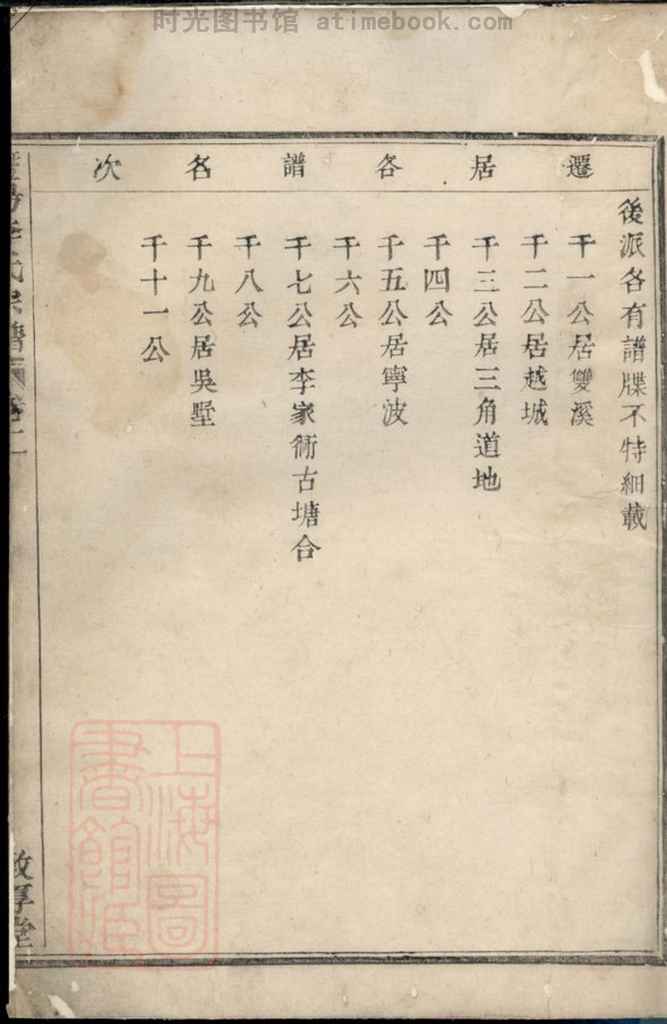 时光图书馆 atimebook.com
遷居各譜名次
後派各有譜牒不特細載
千一公居雙溪
千二公居越城
千三公居三角道地
千四公
千五公居寧波
千六公
千七公居李家衖古塘合
千八公
千九公居吳墅
千十一公
氏宗譜 卷二
敦厚堂
上海圖
書館